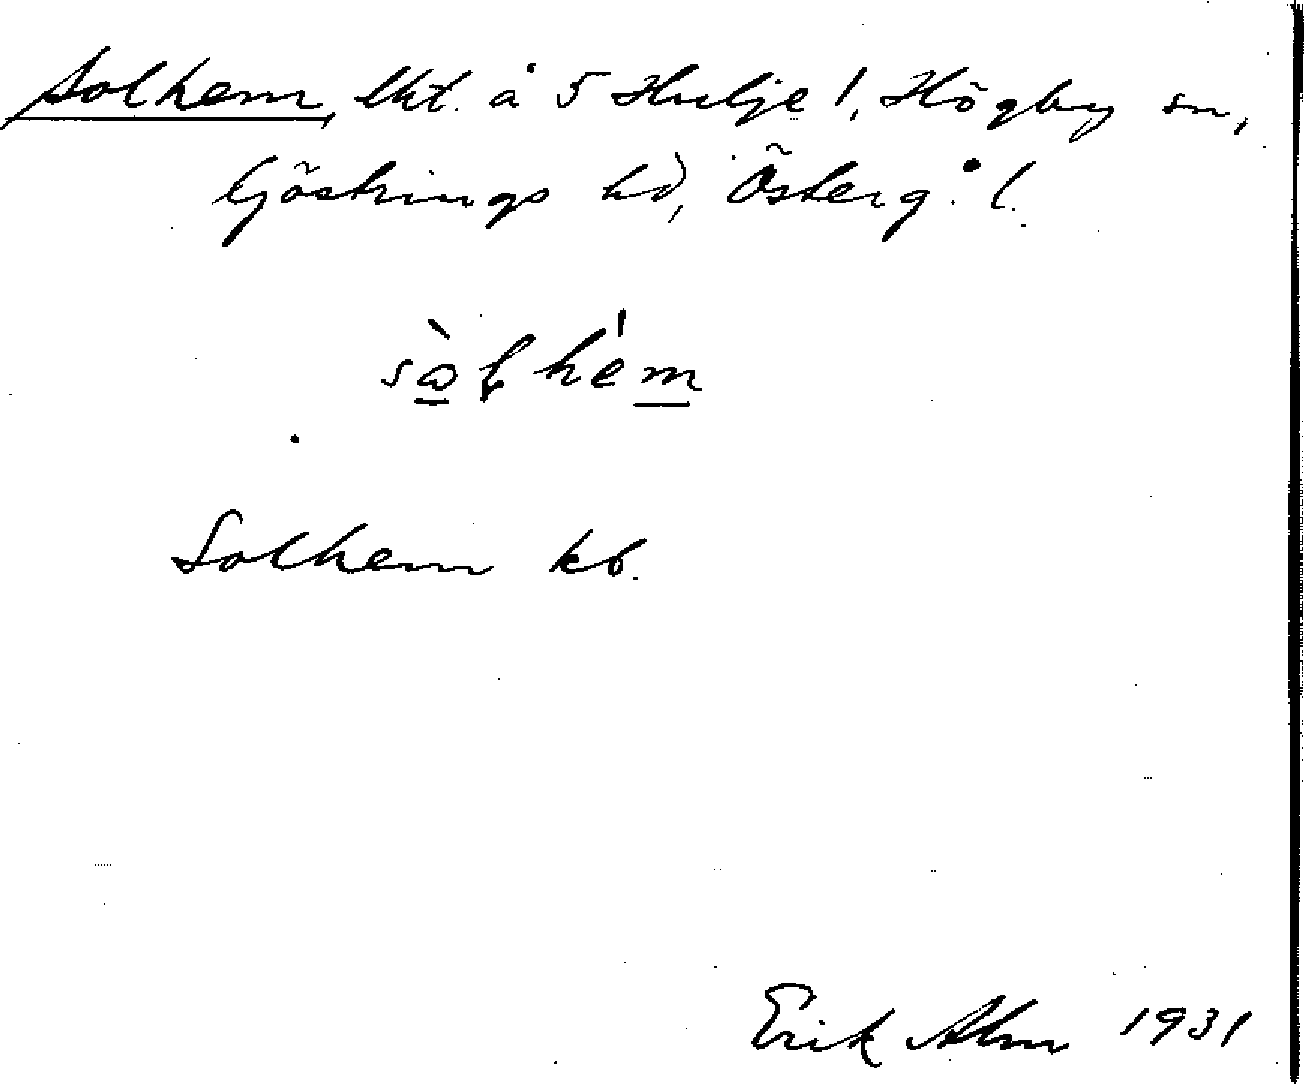 Solhem, lht. å 5 Hulje 1, Högby sn,
Göstrings hd, Österg. l.
sòlhém
Solhem kb.
Erik Alm 1931